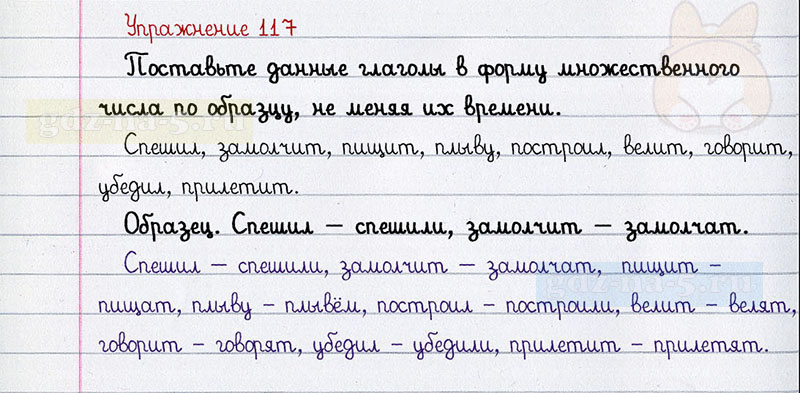 Упражнение 117
Поставьте данные глаголы в форму множественного
числа по образцу, не меняя их времени.
gdz-na-5.ru
Спешил, замолчит, пищит, плыву, построил, велит, говорит,
убедил, прилетит.
Образец. Спешил – спешили, замолчит – замолчат.
Спешил – спешили, замолчит – замолчат, пищит –
gdz-na-5.ru
пищат, плыву – плывём, построил – построили, велит – велят,
говорит – говорят, убедил – убедили, прилетит – прилетят.